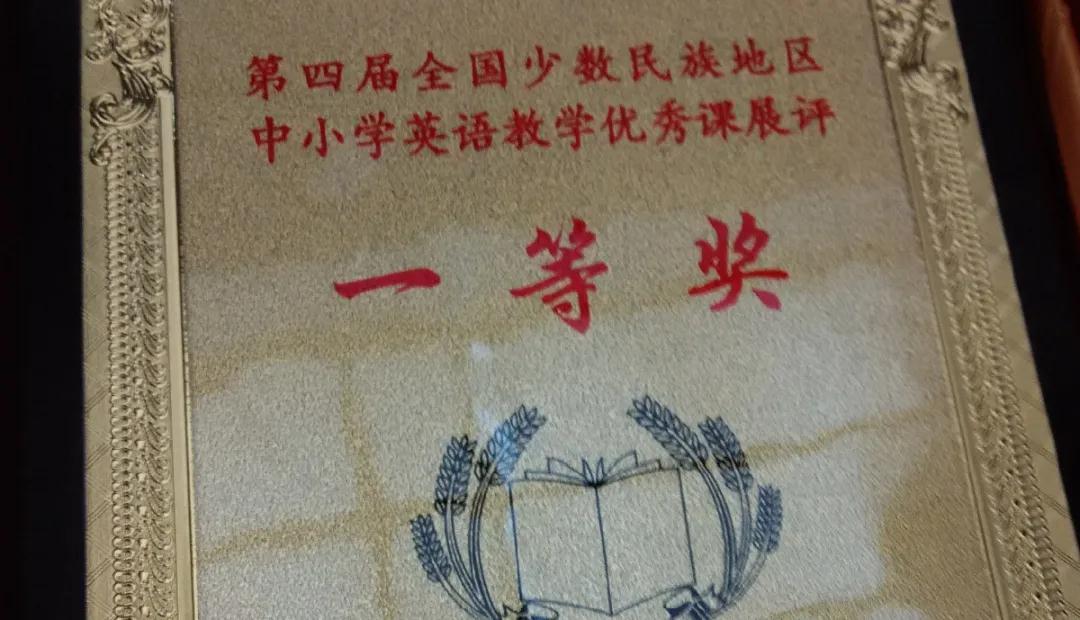 第四届全国少数民族地区
中小学英语教学优秀课展评
一等奖